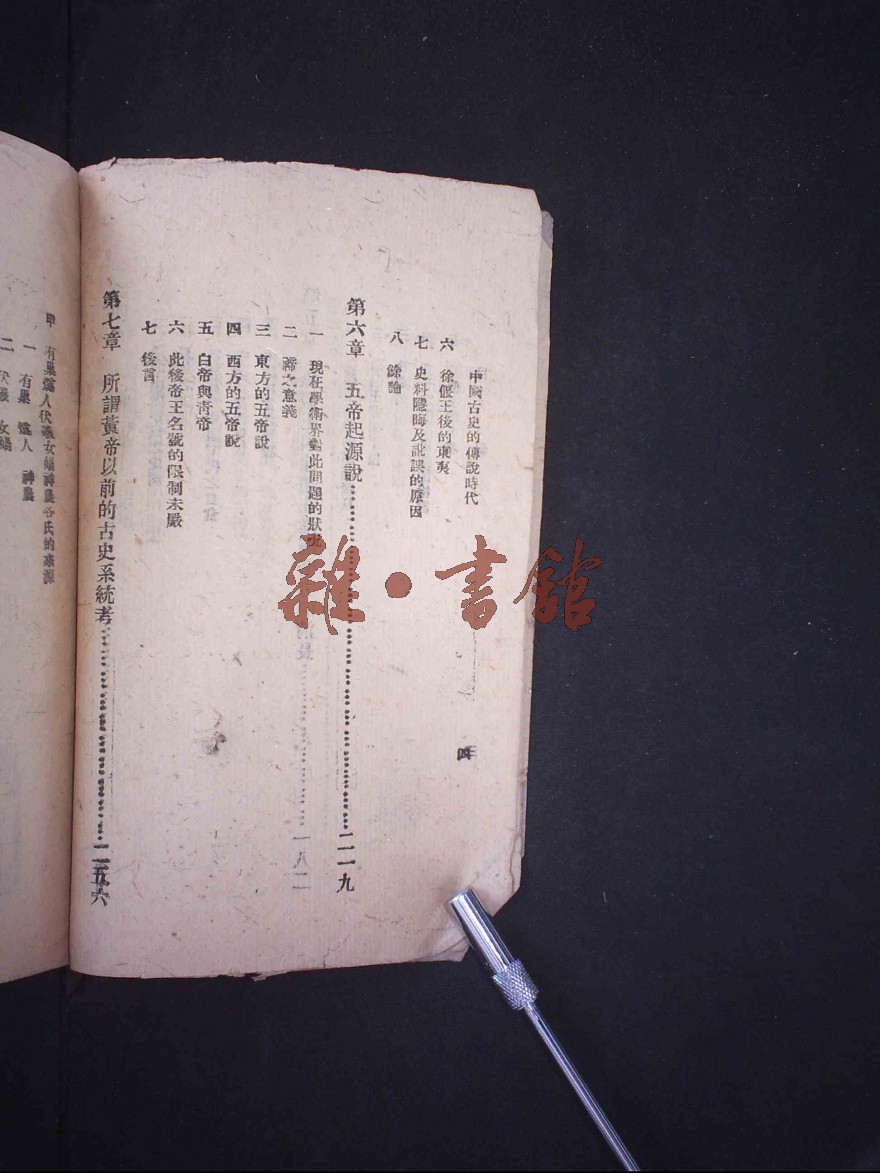 中國古史的傳說時代
四
六 徐偃王後的東夷
七 史料隱晦及訛誤的原因
八 餘論
第六章 五帝起源說
一 現在學術界對此問題的狀況
一八二
二 禘之意義
三 東方的五帝說
四 西方的五帝說
五 白帝與青帝
六 此後帝王名號的限制未嚴
七 後言
第七章 所謂黃帝以前的古史系統考
甲 有巢燧人伏羲女媧神農各氏的來源
一 有巢 燧人 神農
二 伏羲 女媧
雜・書館